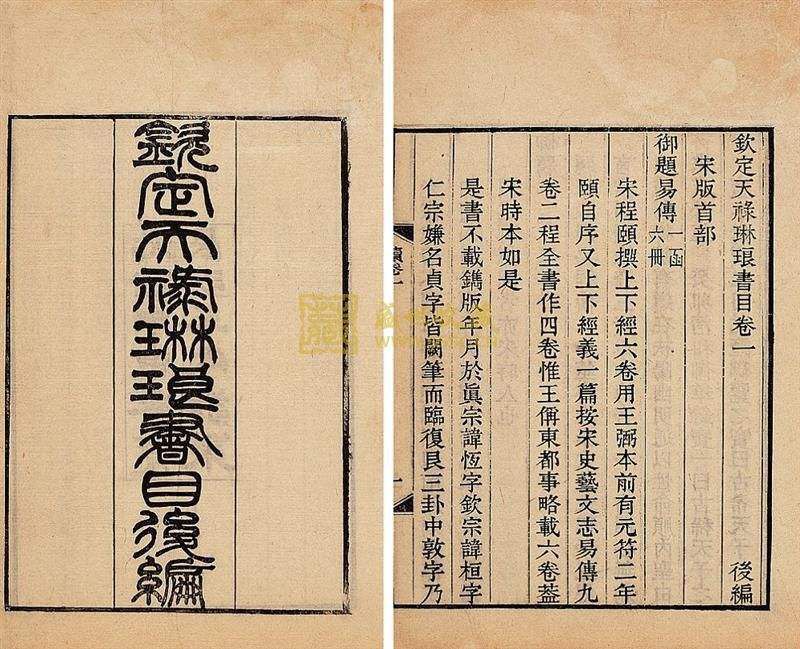 欽定天祿琳琅書目後編
欽定天祿琳琅書目卷一 後編
宋版首部
御題易傳一函六冊
宋程頤撰上下經六卷用王弼本前有元符二年
頤自序又上下經義一篇按宋史藝文志易傳九
卷二程全書作四卷惟王偁東都事略載六卷葢
宋時本如是
是書不載鐫版年月於眞宗諱恆字欽宗諱桓字
仁宗嫌名貞字皆闕筆而臨復艮三卦中敦字乃